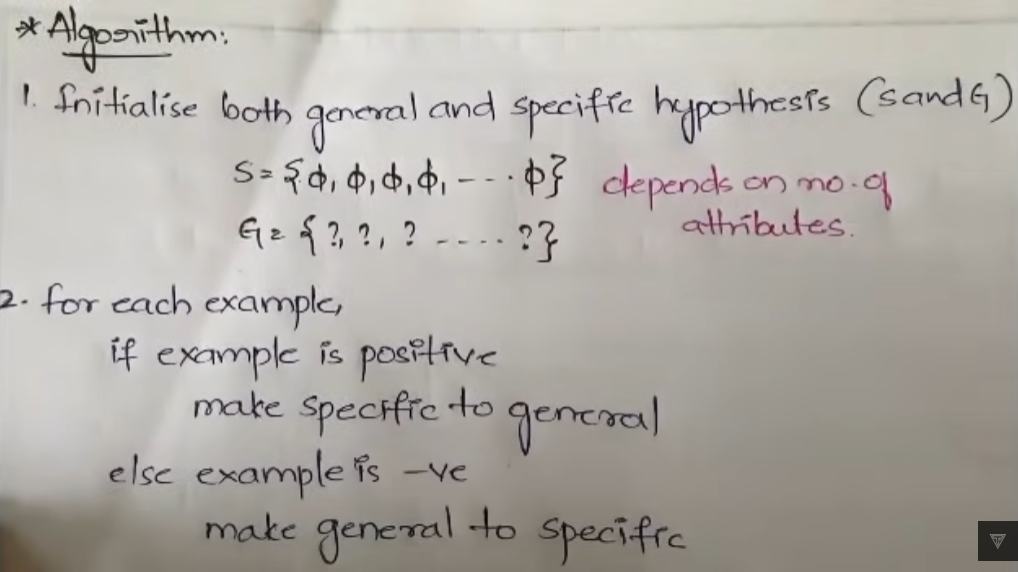 * Algorithm:
1. Initialise both general and specific hypothesis (S and G)
S = {ϕ, ϕ, ϕ, ϕ, --- ϕ} depends on no. of
attributes.
G = {?, ?, ? ---- ?}
2. for each example,
if example is positive
make specific to general
else example is -ve
make general to specific